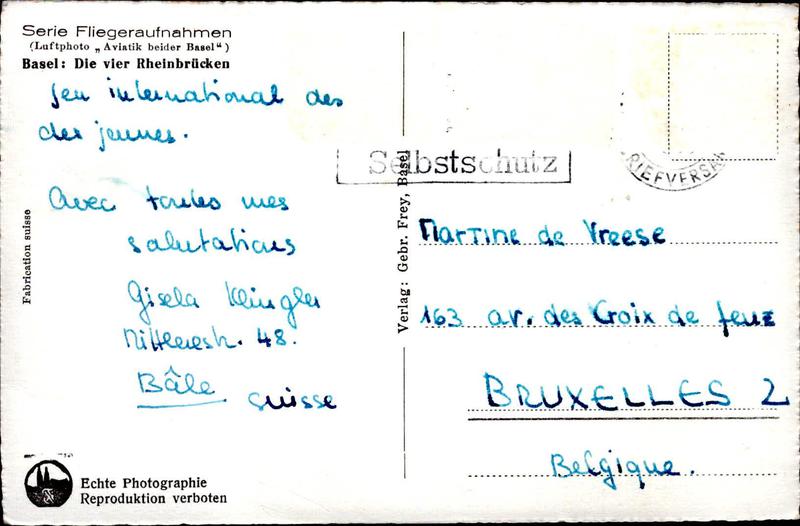 Serie Fliegeraufnahmen
(Luftphoto „Aviatik beider Basel“)
Basel: Die vier Rheinbrücken
Jeu international des
des jeunes.
Avec toutes mes
salutations
Gisela Klingler
48.
Bâle
suisse
Fabrication suisse
Echte Photographie
Reproduktion verboten
Verlag: Gebr. Frey, Basel
Selbstschutz
RIEFVERSA
Martine de Vreese
163 av. des Croix de feuz
BRUXELLES 2
Belgique.